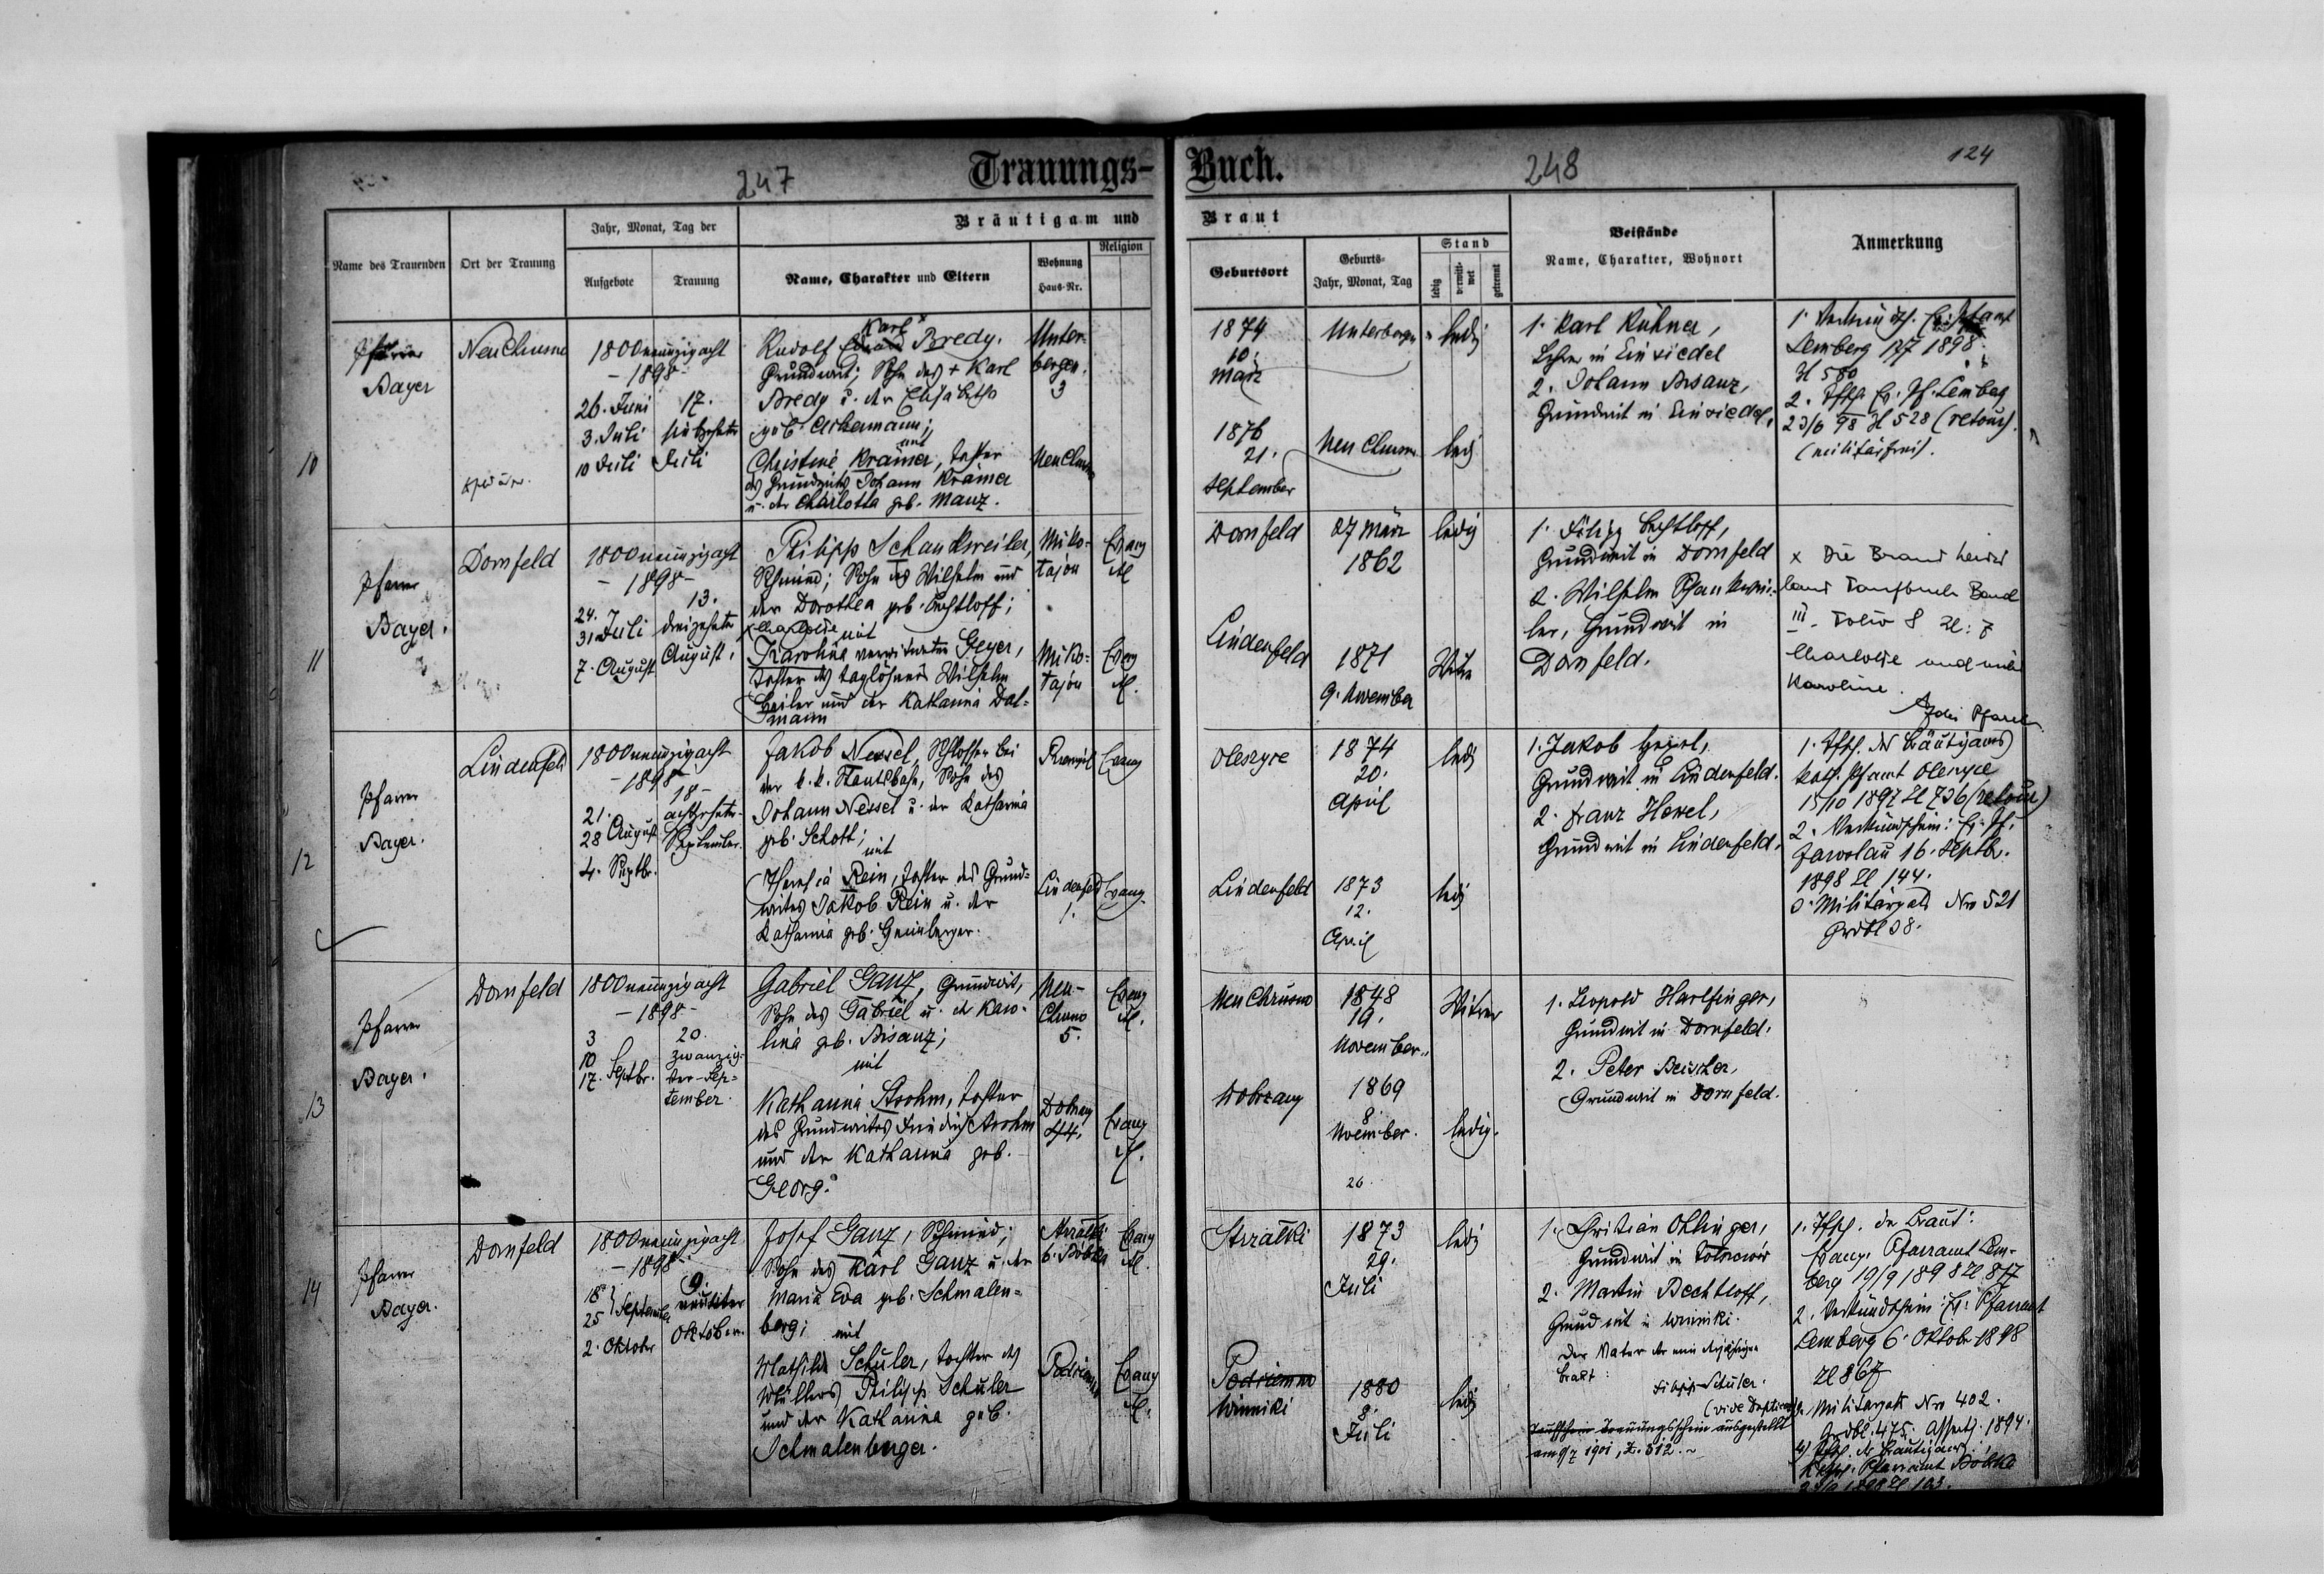 247
Trauungs-
Buch.
248
124
Name des Trauenden
Ort der Trauung
Jahr, Monat, Tag der
Aufgebote
Trauung
Bräutigam und
Name, Charakter und Eltern
Wohnung
Haus-Nr.
Religion
Braut
Geburtsort
Geburts-
Jahr, Monat, Tag
Stand
ledig
verwitt-
wet
getrennt
Beistände
Name, Charakter, Wohnort
Anmerkung
10
Pfarrer
Bayer
Neu Chrusno
1800neunzigacht
- 1898 -
26. Juni
3. Juli
10 Juli
17.
siebzehnter
Juli
Karl x
Rudolf Bredy.
Grundwirt; Sohn des + Karl
Bredy u. der Elisabetha
geb. Ackermann;
mit
Christine Krämer, Tochter
des Grundwirts Johann Krämer
u. der Charlotta geb. Manz.
Unter-
bergen.
3
Neu Chrusno
1874
10.
März
Unterbergen
ledig
1876
21.
September
Neu Chrusno
ledig
1. Karl Kühner,
Lehrer in Einsiedel
2. Johann Bisanz,
Grundwirt in Einsiedel.
1. Verkündsch.
Lemberg 17/7 1898
Zl 580
2. Tfsch. Ev. Pf. Lemberg
23/6 98 Zl 528 (retour).
(militärfrei).
11
Pfarrer
Bayer.
Dornfeld
1800neunzigacht
- 1898 -
24.
31. Juli
7. August
13.
dreizehnter
August.
Philipp Schankweiler,
Schmied; Sohn des Wilhelm und
der Dorothea geb. Bechtloff;
x Charlotte mit
Karolina verwitwete Geyer,
Tochter des Taglöhners Wilhelm
Heiler und der Katharina Dal-
mann
Miko-
lajow
Evang
Miko-
lajow
Evang
Dornfeld
27 März
1862
ledig
Lindenfeld
1871
9. November
Witwe
1. Filipp Bechtloff,
Grundwirt in Dornfeld
2. Wilhelm Schankwei-
ler, Grundwirt in
Dornfeld.
x Die Braut heisst
laut Taufbuch Band
III. Folio 8 Zl: 7
Charlotte und nicht
Karoline.
12
Pfarrer
Bayer.
Lindenfeld
1800neunzigacht
- 1898 -
21.
28 August
4. Septbr.
18 -
achtzehnter
September.
Jakob Nessel, Schlosser bei
der k. k. Staatsbahn, Sohn des
Johann Nessel u. der Katharina
geb. Schott;
mit
Theresia Rein, Tochter des Grund-
wirtes Jakob Rein u. der
Katharina geb. Heuchberger.
Evang
Lindenfeld
1.
Evang.
Oleszyce
1874
20.
April
ledig
Lindenfeld
1873
12.
April
ledig
1. Jakob Hexel,
Grundwirt in Lindenfeld.
2. Franz Hexel,
Grundwirt in Lindenfeld.
1. Tfsch. des Bräutigams
kath. Pfamt Oleszyce
15/10 1897 Zl 736 (retour)
2. Verkündschein: Ev. Pf.
Jaroslau 16. Septbr.
1898 Zl 144.
3. Militärpaß Nro 521
13
Pfarrer
Bayer.
Dornfeld
1800neunzigacht
- 1898 -
3
10
17. Septbr.
20.
zwanzig-
ster Sep-
tember.
Gabriel Ganz, Grundwirt,
Sohn des Gabriel u. der Karo-
lina geb. Bisanz;
mit
Katharina Strohm, Tochter
des Grundwirtes Friedrich Strohm
und der Katharina geb.
Georg.
Neu-
Chrusno
5.
Evang
Dobrzany
44.
Evang
Neu Chrusno
1848
19.
November
Witwer
Dobrzany
1869
8.
November.
ledig.
26.
1. Leopold Harlfinger,
Grundwirt in Dornfeld.
2. Peter Beischer,
Grundwirt in Dornfeld.
14
Pfarrer
Bayer.
Dornfeld
1800neunzigacht
- 1898 -
18
25 September
2. Oktober
9.
neunter
Oktober.
Josef Ganz, Schmied;
Sohn des Karl Ganz u. der
Maria Eva geb. Schmalen-
berg;
mit
Mathilde Schuler, Tochter des
Müllers Philipp Schuler
und der Katharina geb.
Schmalenberger.
Strzałki
b. Bóbrka
Evang
Podciemno
Evang
Strzałki
1873
29.
Juli
ledig
Podciemno
Winniki
1880
8.
Juli
ledig
1. Christian Ottinger,
Grundwirt in
2. Martin Bechtloff,
Grundwirt in Winniki.
Der Vater der minderjährigen
Braut:
Filipp Schuler.
Trauungsschein ausgestellt
am 9/7 1901, Z. 512.
1. Tfsch. der Braut:
Evang. Pfarramt Lem-
berg 19/9 1898 Zl 817
2. Verkündschein: Ev. Pfarramt
Lemberg 6. Oktober 1898
Zl 867
Militärpaß Nro 402.
Grdbl. 475. Assentj. 1894.
4) Tfsch. des Bräutigams
Pfarramt Bóbrka